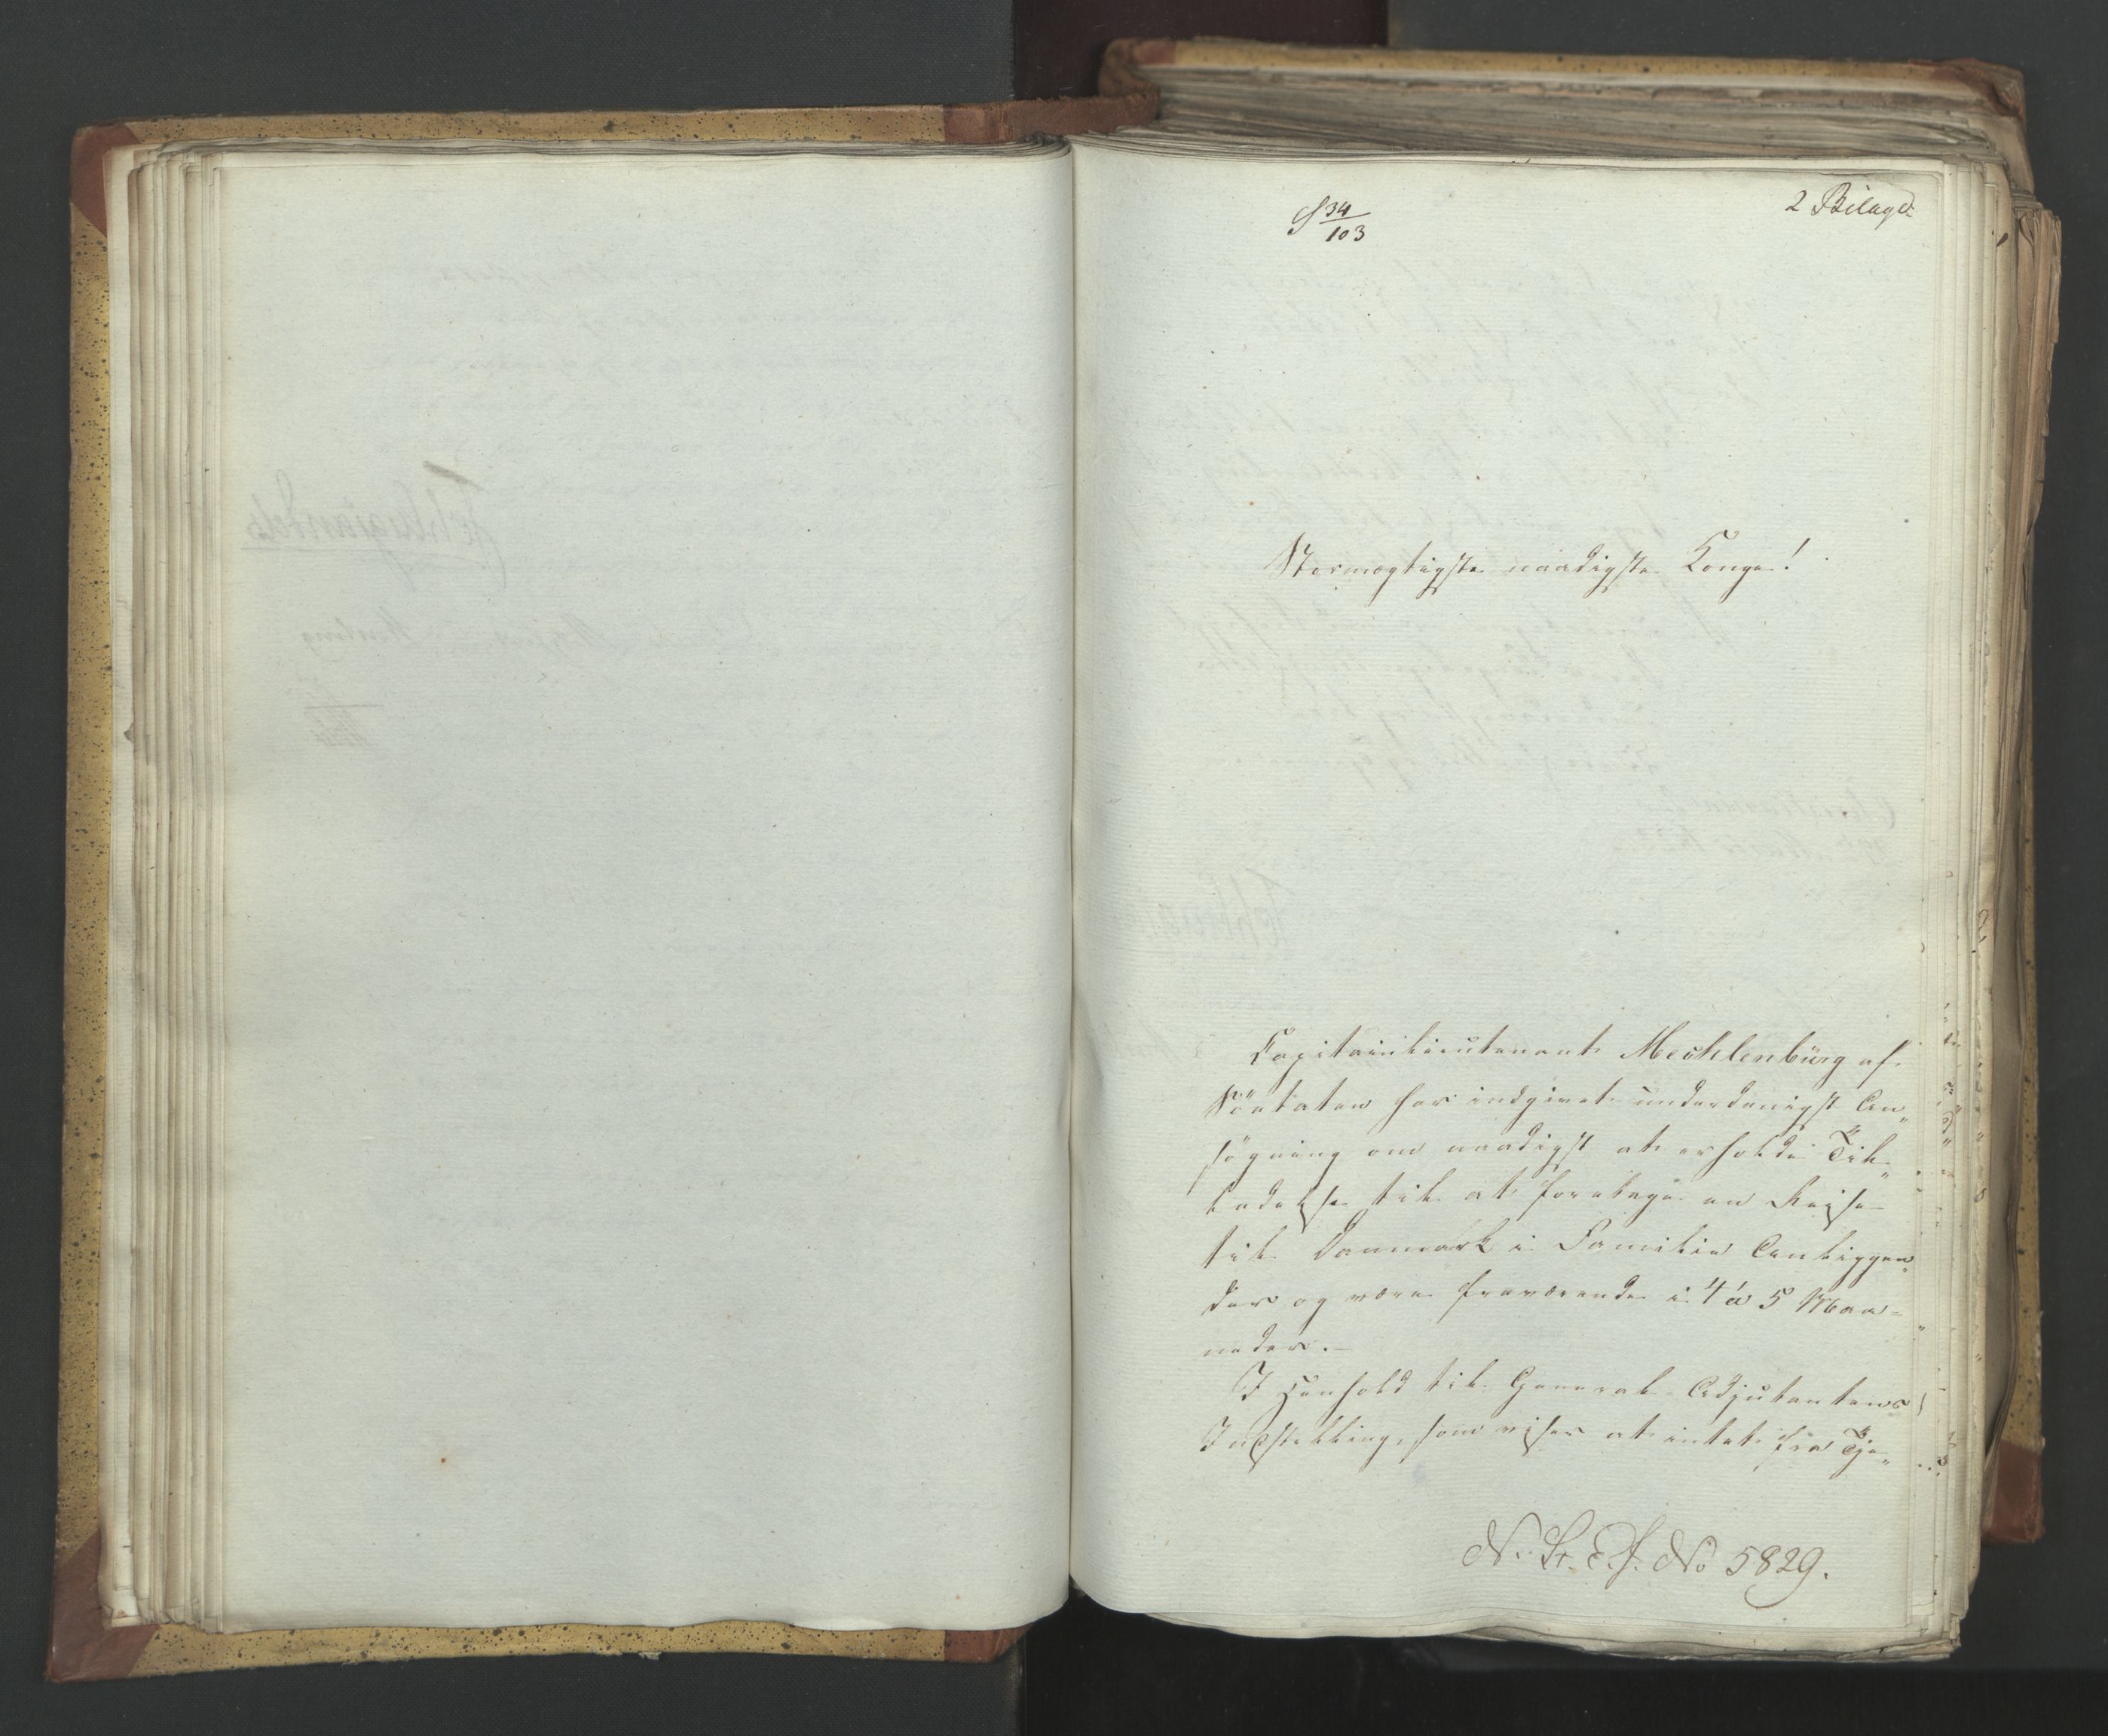 S 34/103
2 Bilage.
Stormægtigste naadigste Konge!
Capitainlieutenant Mechlenbürg af
Söetaten har indgivet underdanigst An„
søgning om naadigst at erholde Til„
ladelse til at foretage en Reise
til Danmark i Familie Anliggen„
der og være fraværende i 4 à 5 Maa-
neder.—
I Henhold til General-Adjutantens
Indstilling, som viser at intet fra Tje„
N. St. E. J. No 5829.